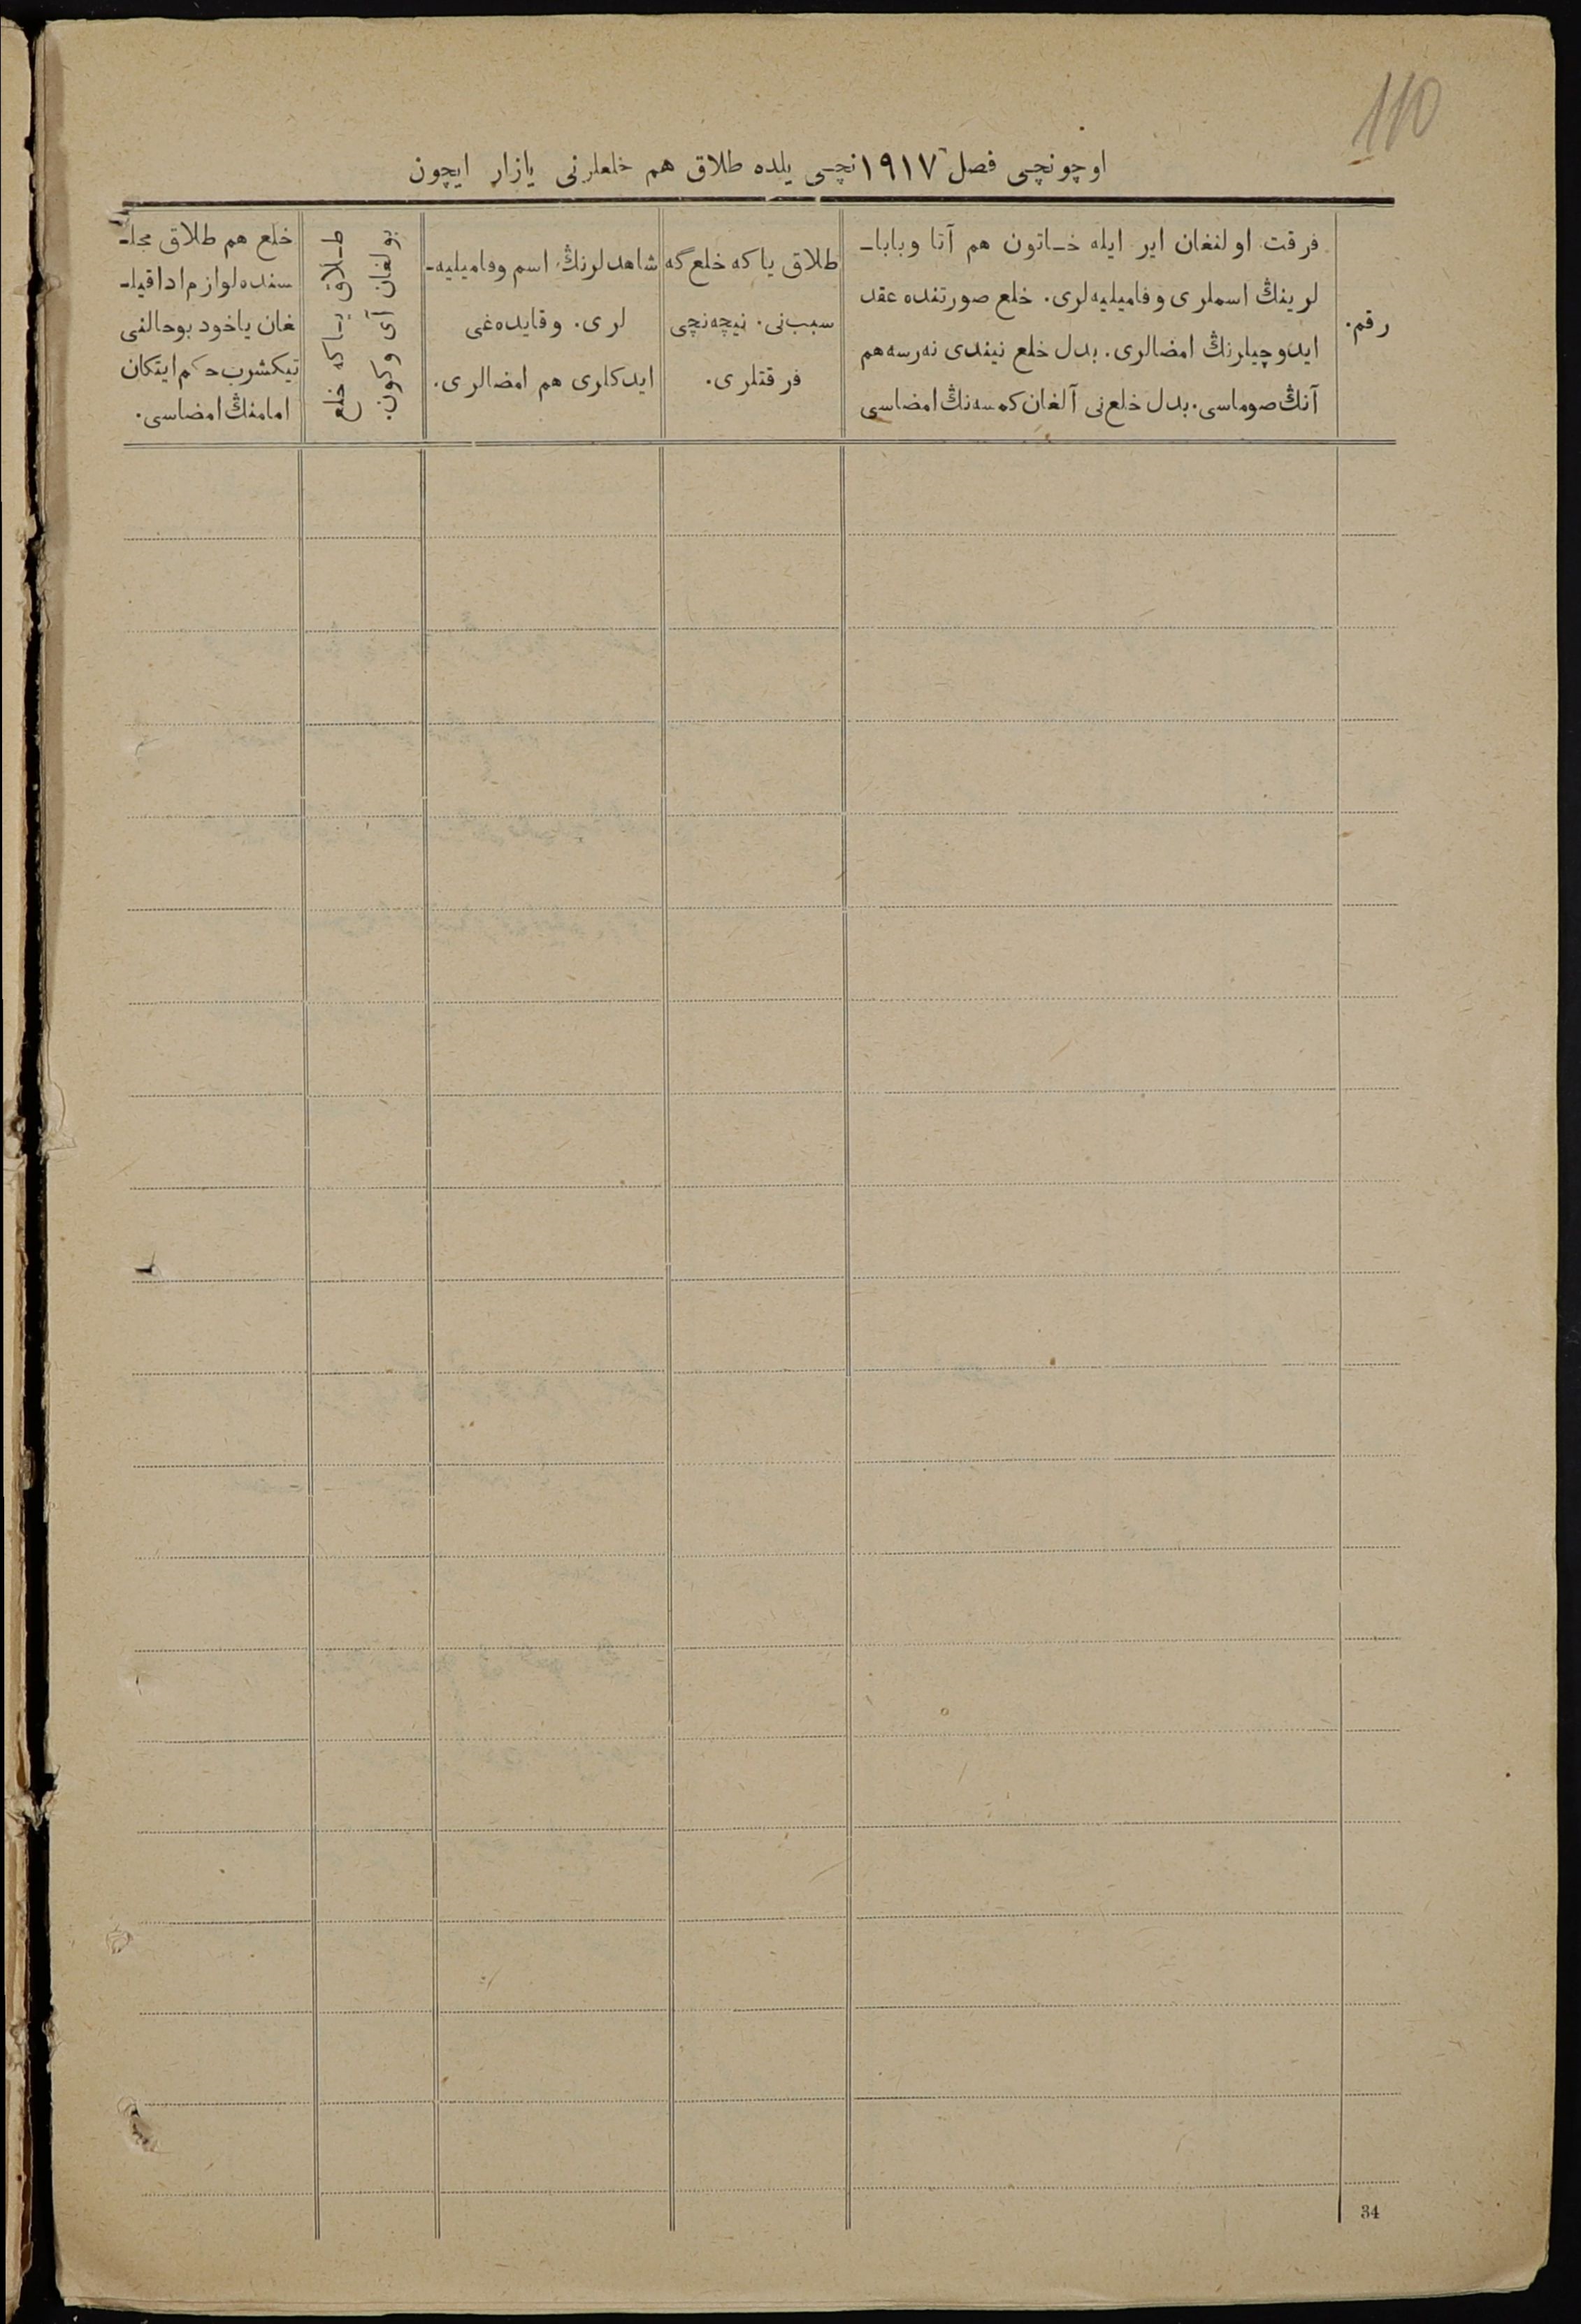 110
اوچونچی فصل ١٩١٧نچی یلده طلاق هم خلعلرنی یازار ایچون
رقم.
فرقت اولنغان ایر ایله خـاتون هم آتا وبابا۔
لرینڭ اسملری وفامیلیه‌لری. خلع صورتنده عقد
ایدوچیلرنڭ امضالری. بدل خلع نیندی نه‌رسه هم
آنڭ صوماسی. بدل خلع‌نی آلغان کمسه‌نڭ امضاسی
طلاق یاکه خلع‌گه
سبب‌نی. نیچه‌نچی
فرقتلری.
شاهدلرنڭ اسم وفامیلیه۔
لری. وقایده‌غی
ایدکلری هم امضالری.
طـلاق یـاکه خلع
بولغان آی وکون.
خلع هم طلاق مجلـ
سنده لوازم ادا قیلـ
غان یاخود بوحالنی
تیکشرب حکم ایتکان
امامنڭ امضاسی.
34